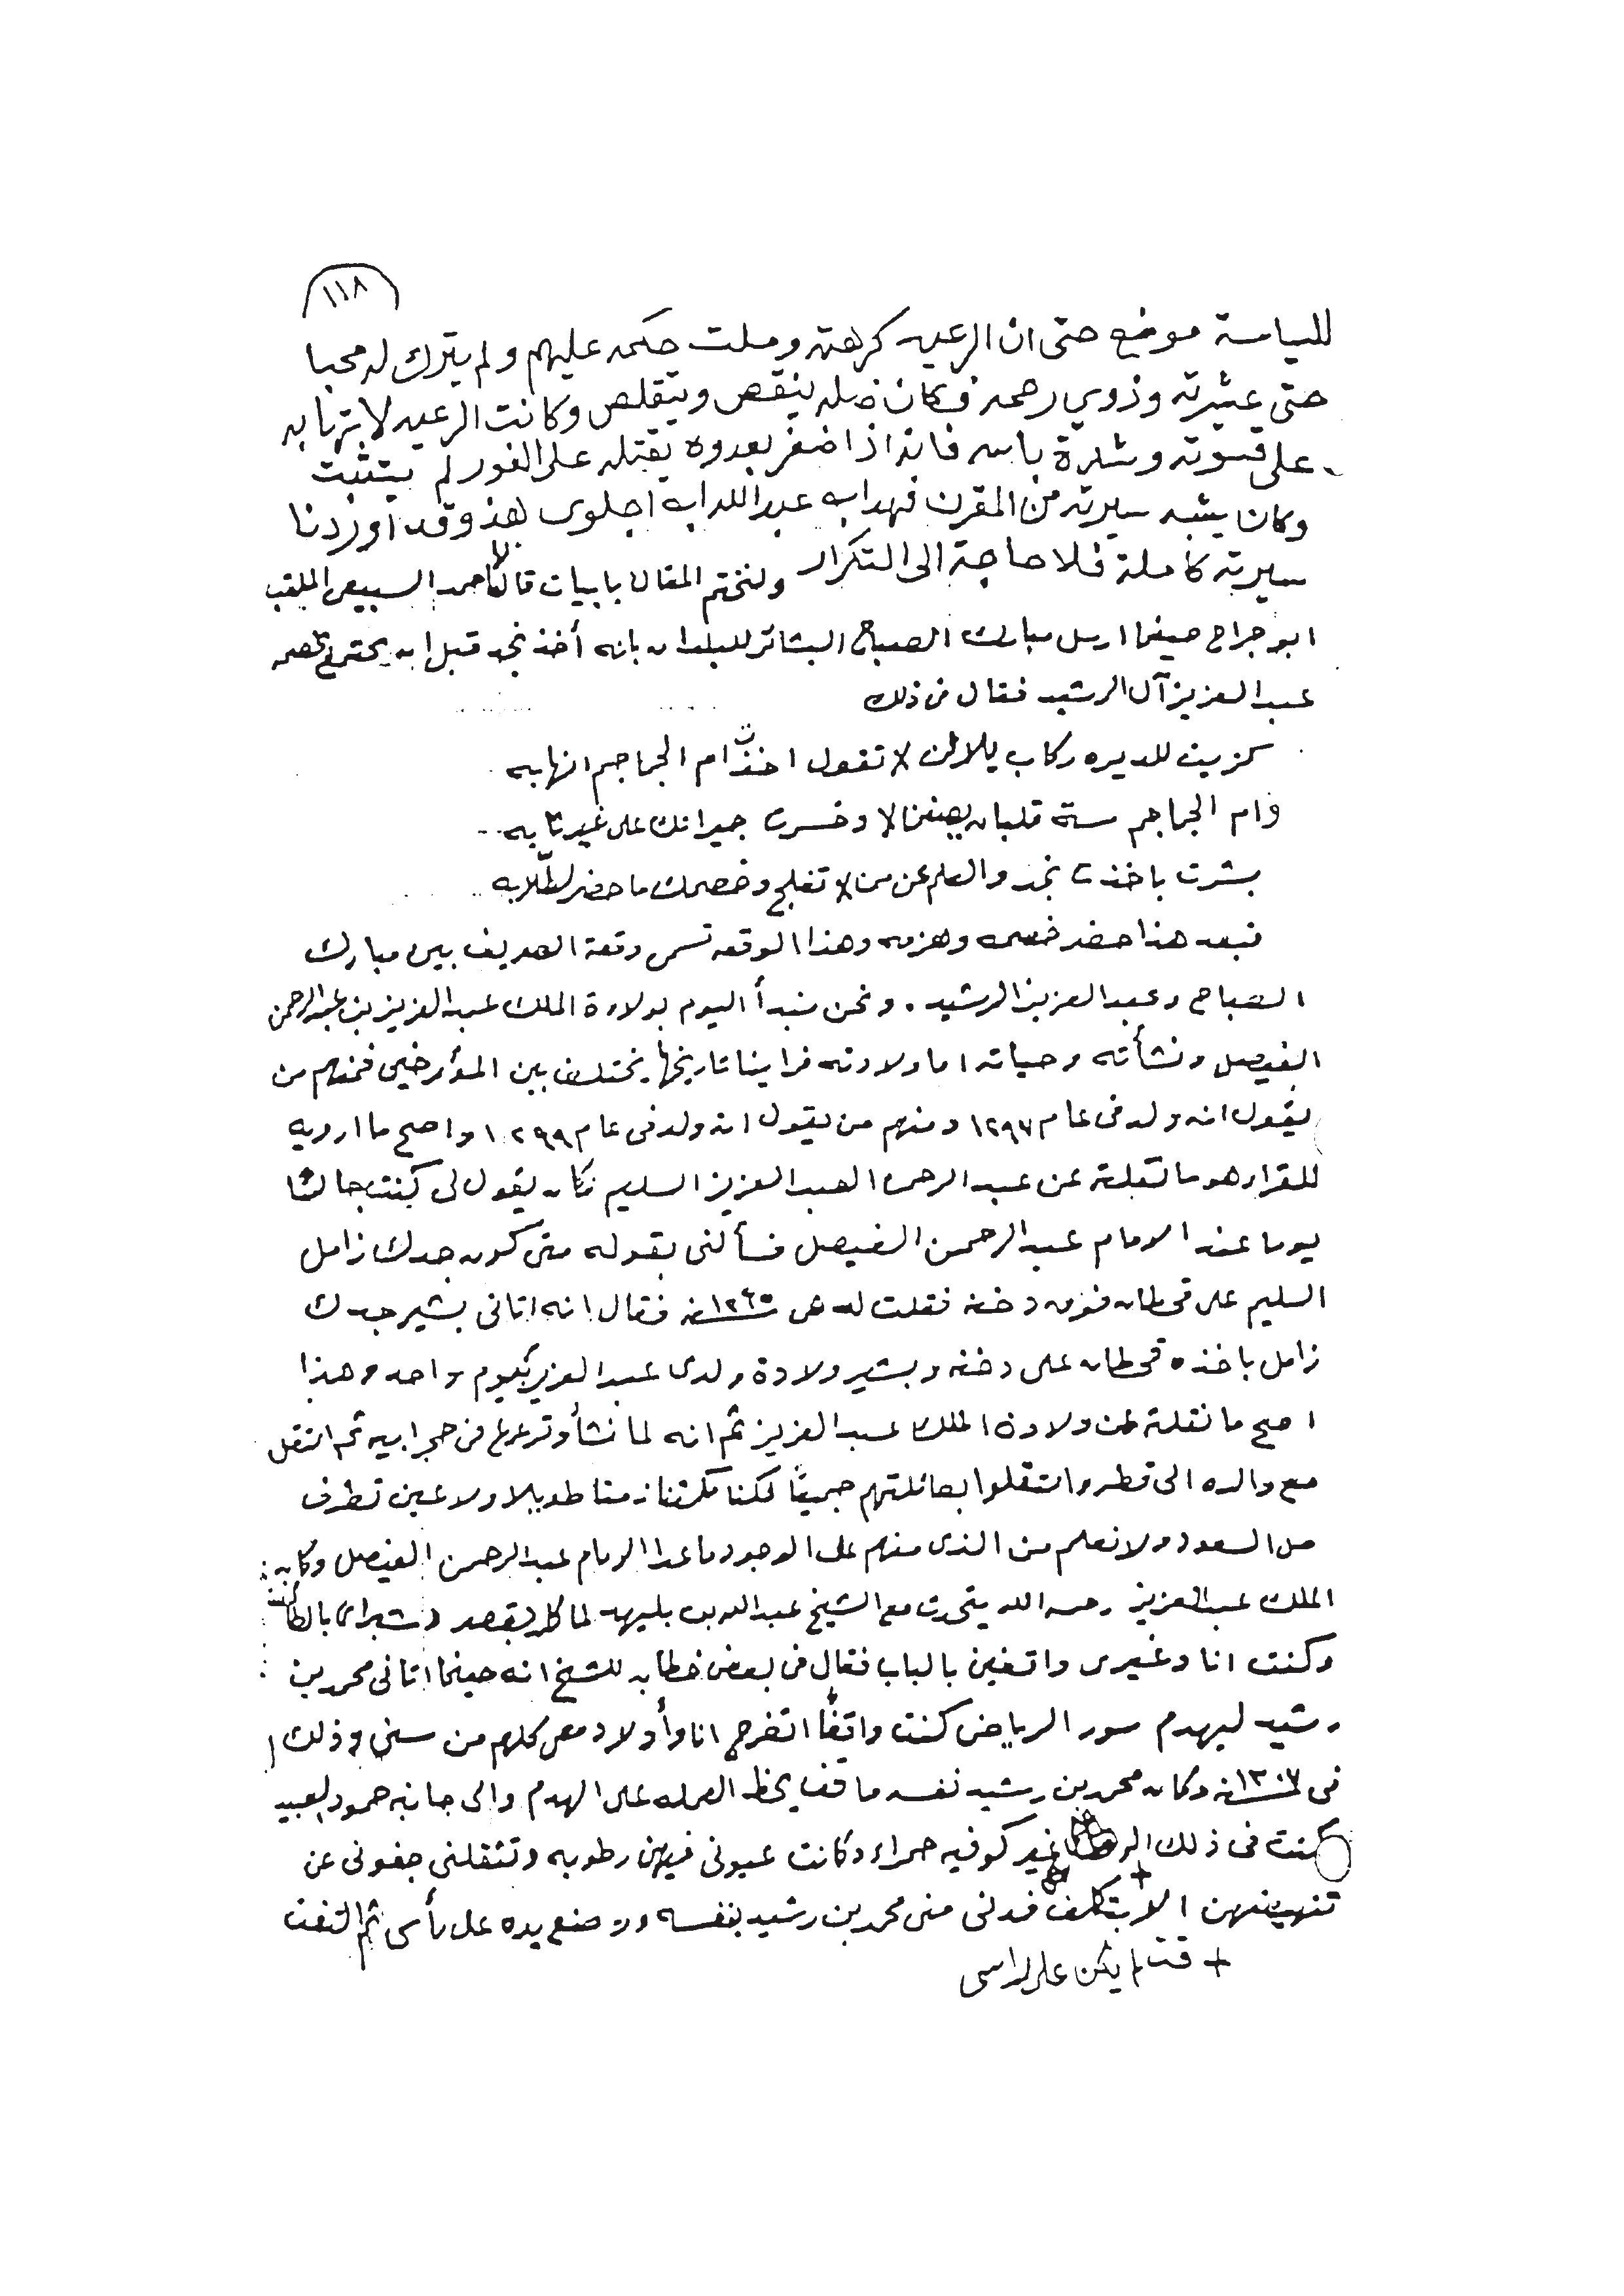 ١١٨
للسياسة موضع حتى ان الرعيه كرهته وملت حكمه عليهم ولم يترك له محبا
حتى عشيرته وذوي رحمه فكان ظله ينقص ويتقلص وكانت الرعيه لا ترتابه
على قسوته وشدة باسه فانه اذا ضفر بعدوه يقتله على الفور لم يتثبت
وكان يشبه سيرته من المقرن فهد ابه عبد الله ابه اجلوى هذ وقد اوردنا
سيرته كاملة فلا حاجة الى التكرار ولنختم المقال بابيات قالها حمد السبيعي الملقب
ابو جراح حينما ارسل مبارك الصباح البشائر للبلدان بانه أخذ نجد قبل ان يجتمع بخصمه
عبد العزيز آل الرشيد فقال في ذلك
كزيت للديره ركاب يلالن لا تقول اخذت ام الجماجم انهابه
وام الجماجم ستة قلبان يصفن لا وخسرت جيرانك على غير ثابه
بشرت باخذت نجد والعلم عن من لا تفلج وخصمك ما حضر لطلابه
فبعد هذا حضر خصمه وهزمه وهذا الوقعه تسمى وقعة الصريف بين مبارك
الصباح وعبد العزيز الرشيد . ونحن نبدأ اليوم بولادة الملك عبد العزيز بن عبد الرحمن
الفيصل ونشأته وحياته اما ولادته فراينا تاريخها يختلف بين المؤرخين فمنهم من
يقول انه ولد في عام ١٢٩٧ ومنهم من يقول انه ولد في عام ١٢٩٩ واصح ما ارويه
للقراء هو ما نقلته عن عبد الرحمن العبد العزيز السليم فكان يقول لي كنت جالسا
يوما عند الامام عبد الرحمن الفيصل فسألني بقوله متى كون جدك زامل
السليم على قحطان فوق دخنه فقلت له في سنة فقال انه اتاني بشير جدك
زامل باخذه قحطان على دخنه وبشير ولادة ولدي عبد العزيز بيوم واحد وهذا
اصح ما نقلته عن ولادة الملك عبد العزيز ثم انه لما نشأ وترعرع في حجر ابيه ثم انتقل
مع والده الى قطر وانتقلوا بعائلتهم جميعًا لكنا مكثنا زمنا طويلا ولا عين تطرف
من السعود ولا نعلم من الذي منهم على الوجود ما عدا الامام عبد الرحمن الفيصل وكان
الملك عبد العزيز رحمه الله يتحدث مع الشيخ عبد الله بن بليهد لما كان بقصر شبرا بالطائف
وكنت انا وغيري واقفين بالباب فقال في بعض خطابه للشيخ انه حينما اتاني محمد بن
رشيد ليهدم سور الرياض كنت واقفًا اتفرج انا وأولاد معي كلهم من سني وذلك
في سنة ١٣٠٧ وكان محمد بن رشيد نفسه واقف يحظ العمله على الهدم والى جانبه حمود العبيد
كنت في ذلك غير كوفيه حمراء وكانت عيوني فيهن رطوبه وتثقلني جفوني عن
تنهيضهن الا بتكلف فدنى مني محمد بن رشيد بنفسه ووضع يده على رأسي ثم التفت
+ لم يكن على راسي